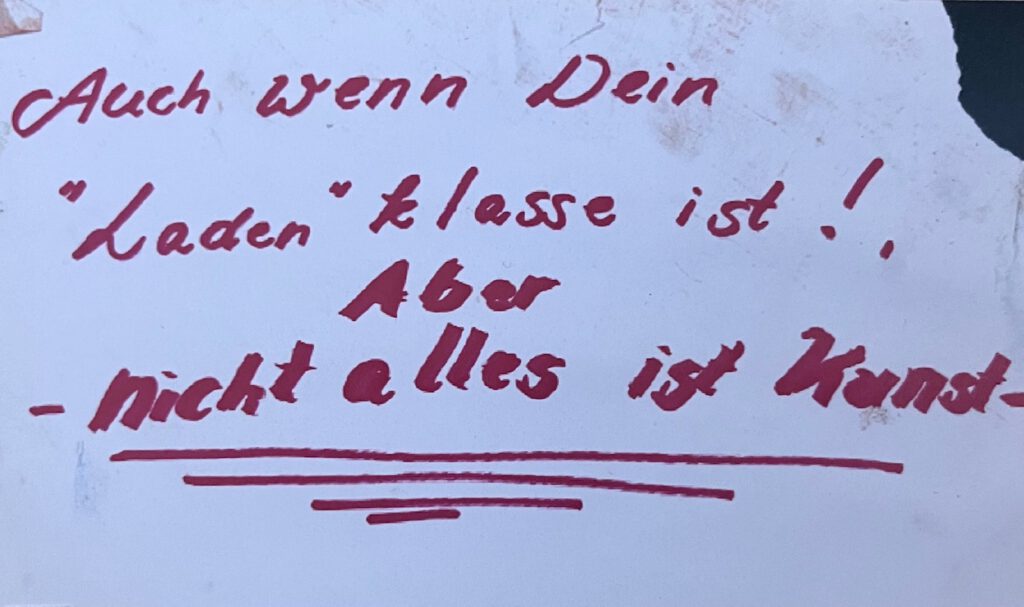 Auch wenn Dein
"Laden" klasse ist!,
Aber
- nicht alles ist Kunst -